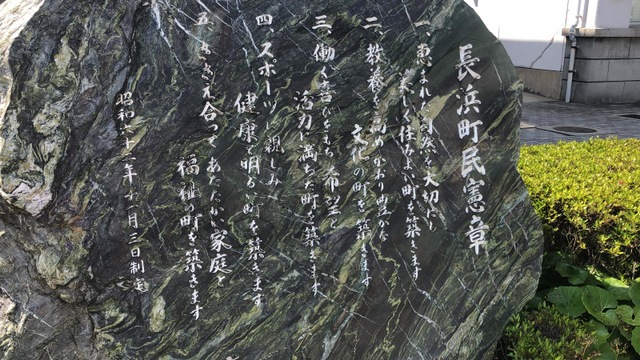 長浜町民憲章
一、恵まれた自然を大切にし
美しく住みよい町を築きます
二、教養を高めかおり豊かな
文化の町を築きます
三、働く喜びをもち希望と
活力に満ちた町を築きます
四、スポーツに親しみ
健康で明るい町を築きます
五、ささえ合ってあたたかい家庭と
福祉の町を築きます
昭和六十一年十一月三日制定